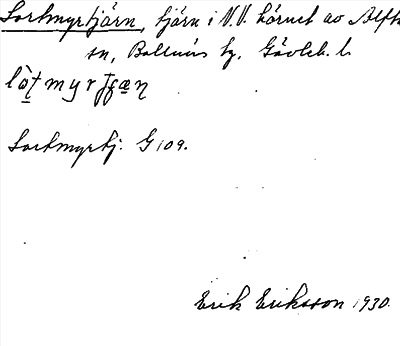 Lortmyrtjärn, tjärn i N.V. hörnet av Alfta
sn, Bollnäs tg, Gävleb. l
Lortmyrtj. G 109.
Erik Eriksson 1930.